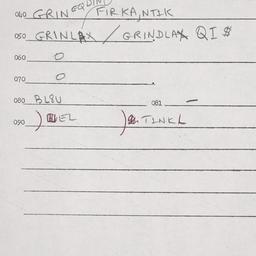 EQDINI
040 GRIN / FIRKA, NTIK
050 GRINLAX / GRINDLAX QI $
060 0
070 0
080 BL8U 081 –
090 ) EL ) TINKL